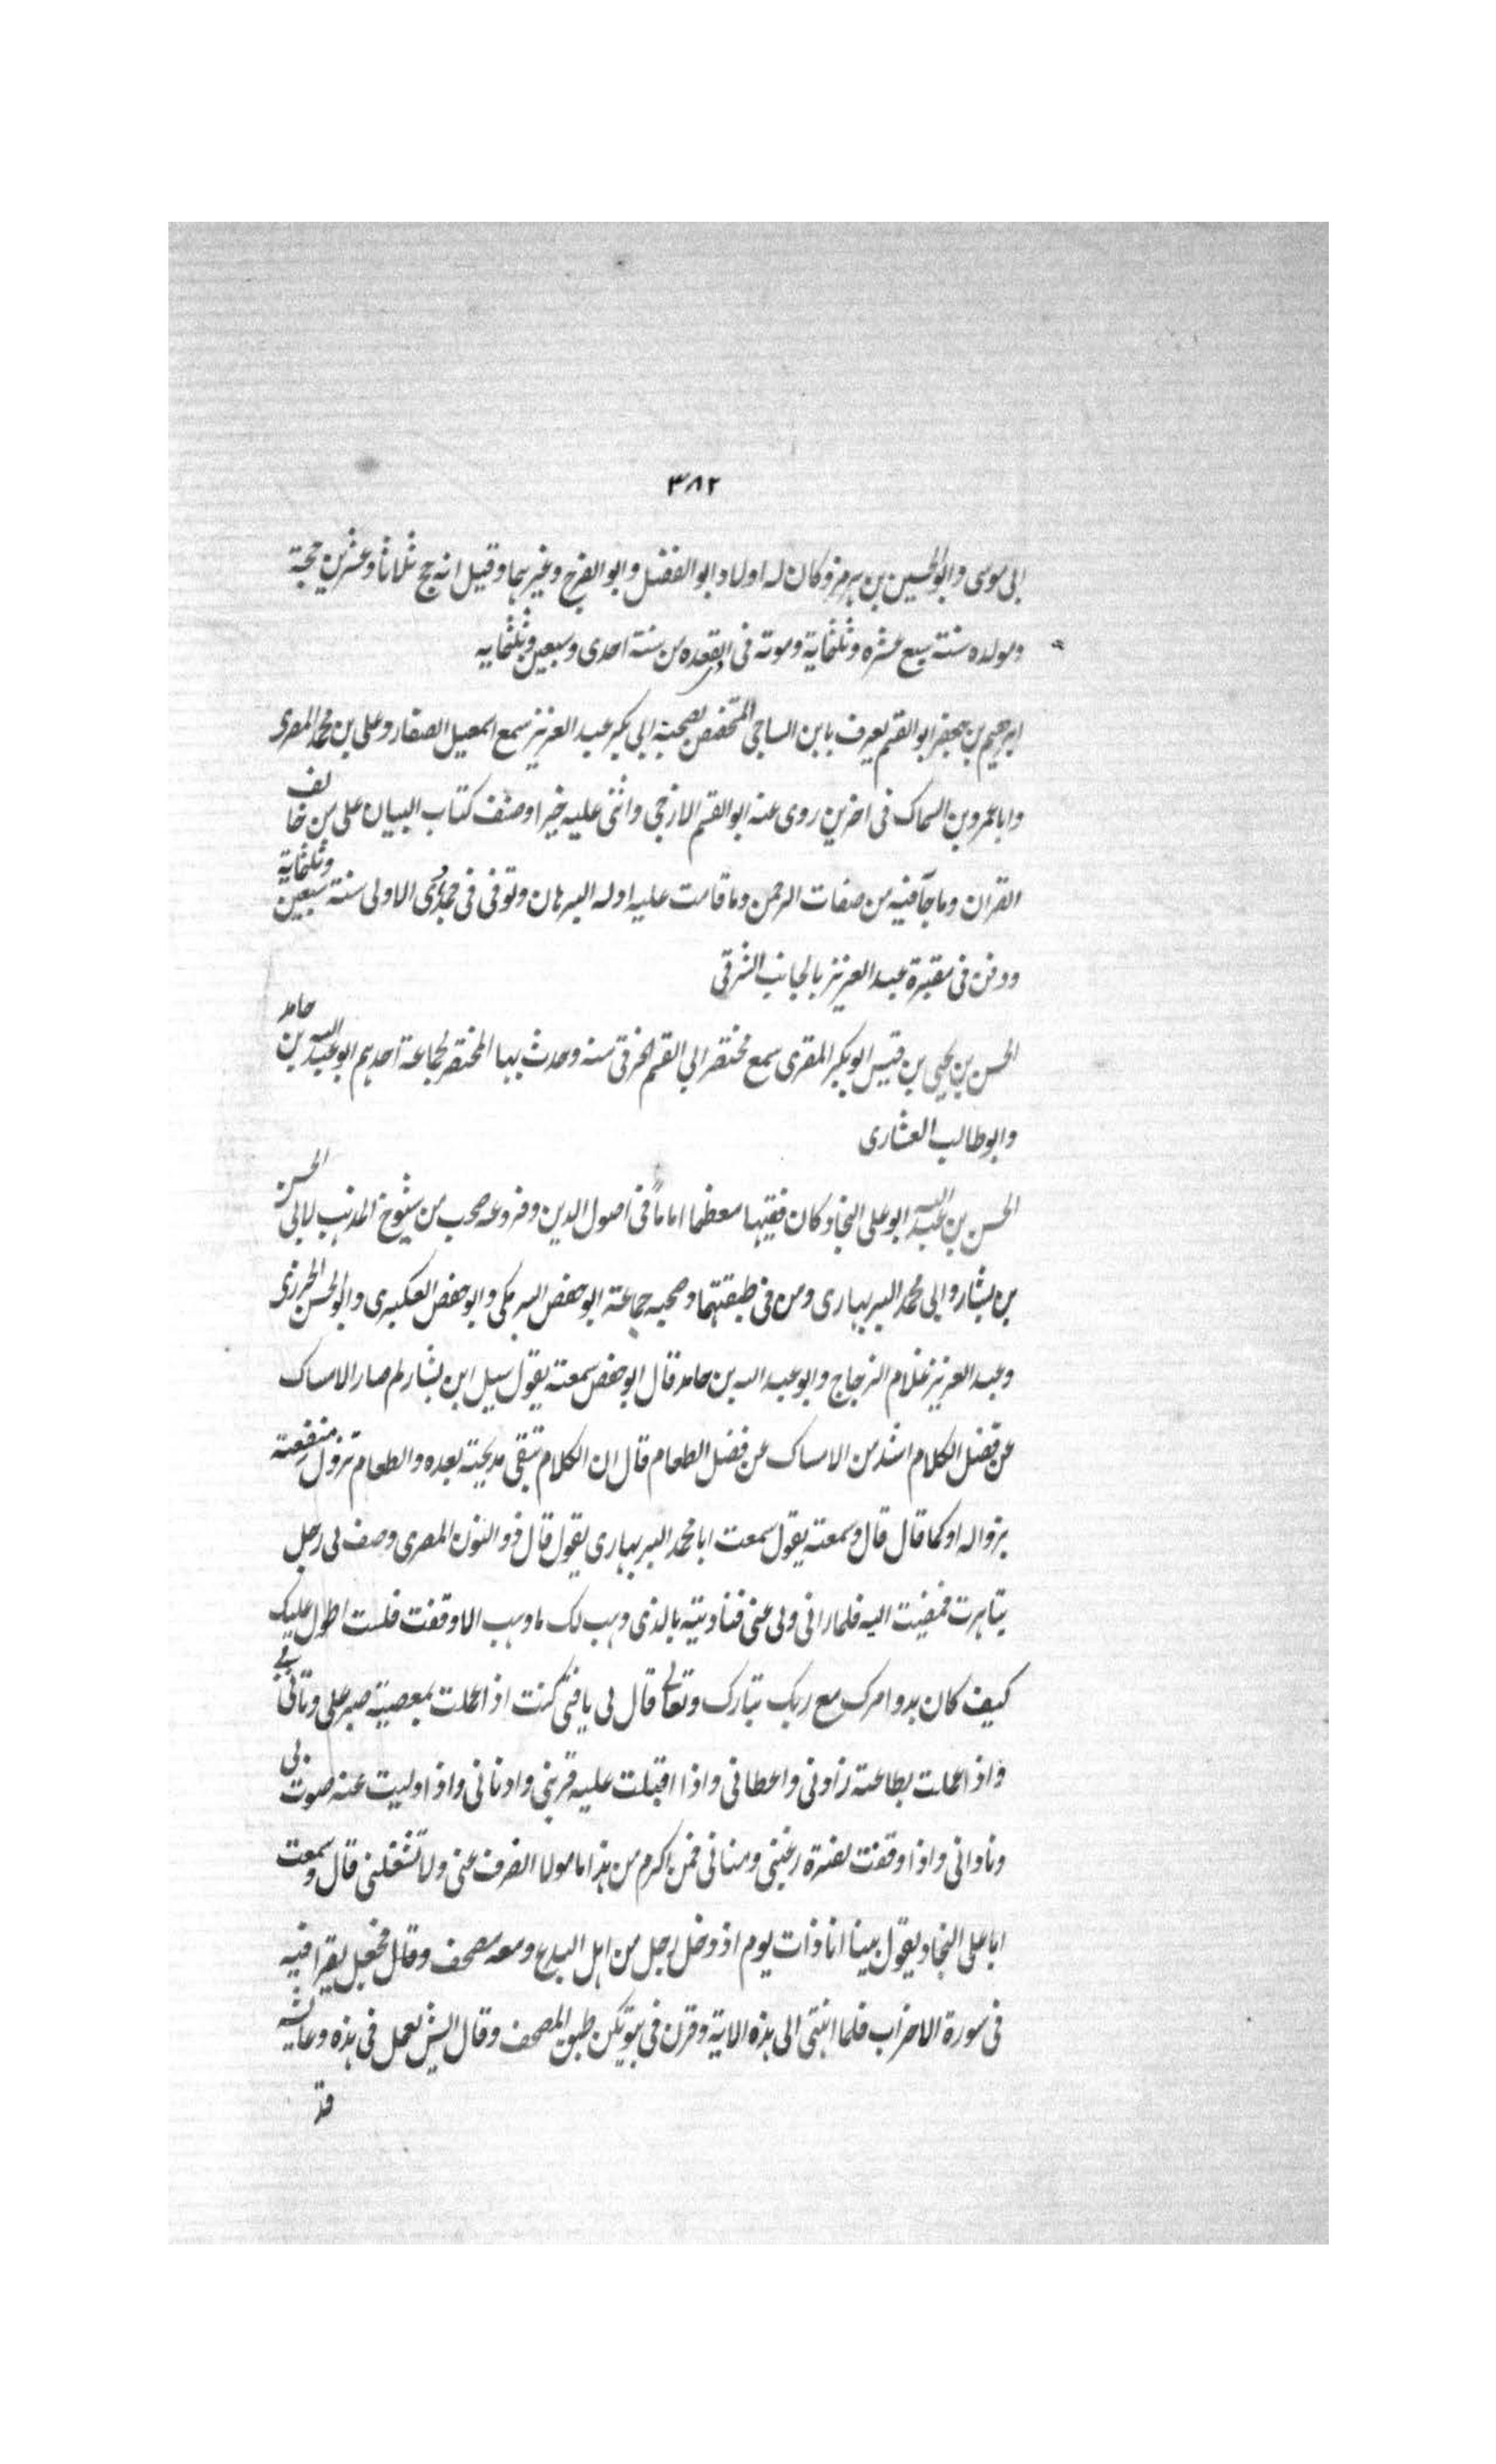 ٣٨٢
ابي موسى وابو الحسين بن هرمز وكان له اولاد ابو الفضل وابو الفرج وغيرهما وقيل انه حج ثلاثا وعشرين حجة
ومولده سنة سبع عشره وثلثماية وموته في ذي القعده من سنة احدى وسبعين وثلثمايه
ابرهيم بن جعفر ابو القسم يعرف بابن الساجي المتخصص بصحبة ابي بكر عبد العزيز سمع اسمعيل الصفار وعلى بن محمد المصرى
وابا عمرو بن السماك في اخرين روى عنه ابو القسم الازجي واثنى عليه خيرا وصنف كتاب البيان على من خالف
القران وما جآ فيه من صفات الرحمن وما قامت عليه ادله البرهان وتوفى في جمادى الاولى سنة سبعين وثلثماية
ودفن في مقبرة عبد العزيز بالجانب الشرقي
الحسن بن يحيى بن قيس ابو بكر المقرى سمع مختصر ابي القسم الخرقي منه وحدث بهذا المختصر لجماعة احدهم ابو عبد الله بن حامد
وابو طالب العشارى
الحسن بن عبد الله ابو على النجاد كان فقيها معظما اماماً في اصول الدين وفروعه صحب من شيوخ المذهب لابي الحسن
بن بشار وابي محمد البربهارى ومن في طبقتهما وصحبه جماعة ابو حفص البرمكي وابو حفص العكبرى وابو الحسن الخرزى
وعبد العزيز غلام الزجاج وابو عبد الله بن حامد قال ابو حفص سمعته يقول سيل ابن بشار لم صار الامساك
عن فضل الكلام اشد من الامساك عن فضل الطعام قال ان الكلام تبقى مديحته بعده والطعام تزول منفعته
بزواله او كما قال قال وسمعته يقول سمعت ابا محمد البربهارى يقول قال ذو النون المصرى وصف لي رجل
بتاهرت فمضيت اليه فلما راني ولى عني فناديته بالذى وهب لك ما وهب الا وقفت فلست اطول عليك
كيف كان بدو امرك مع ربك تبارك وتعالى قال لي يا فتى كنت اذا عملت بمعصية صبر على وتاني بي
واذا عملت بطاعة زادني واعطاني واذا اقبلت عليه قربني وادناني واذا وليت عنه صوت لي
وناداني واذا وقفت لفترة رغبني ومناني فمن اكرم من هذا مامولا انصرف عني ولا تشغلني قال وسمعت
ابا على النجاد يقول بينا انا ذات يوم اذ دخل رجل من اهل البدع ومعه مصحف وقال فجعل يقرا فيه
في سورة الاحزاب فلما انتهى الى هذه الاية وقرن في بيوتكن طبق المصحف وقال ايش نعمل في هذه وعايشه
قد